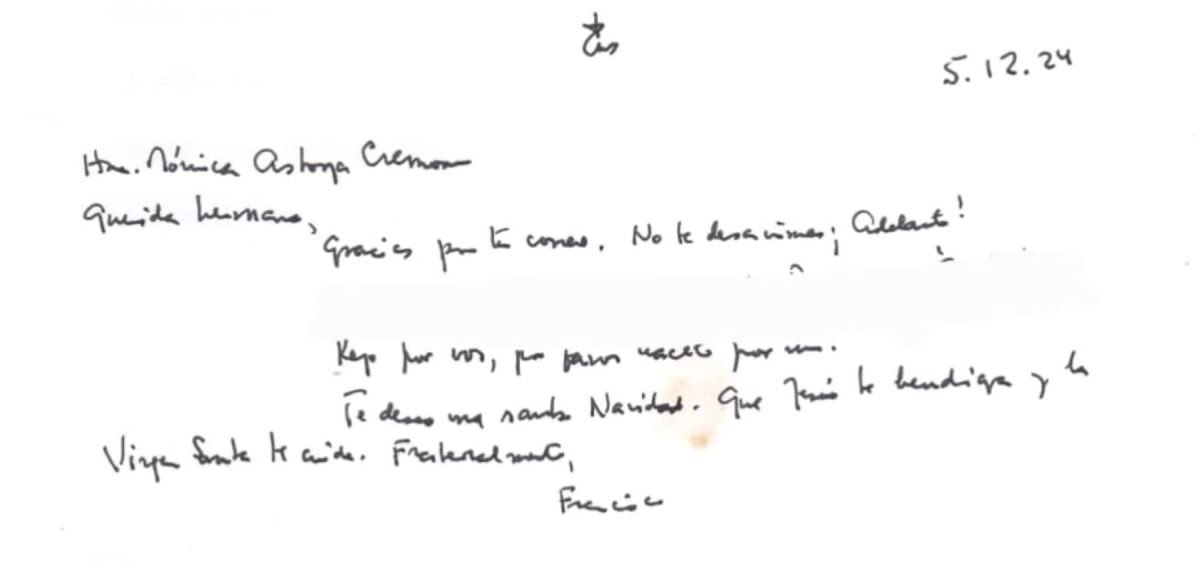 5.12.24
Hna. Mónica Astorga Cremona
Querida hermana,
Gracias por tu correo. No te desanimes; Adelante!
Rezo por vos, por favor hacelo por mí.
Te deseo una santa Navidad. Que Jesús te bendiga y la
Virgen Santa te cuide. Fraternalmente,
Francisco